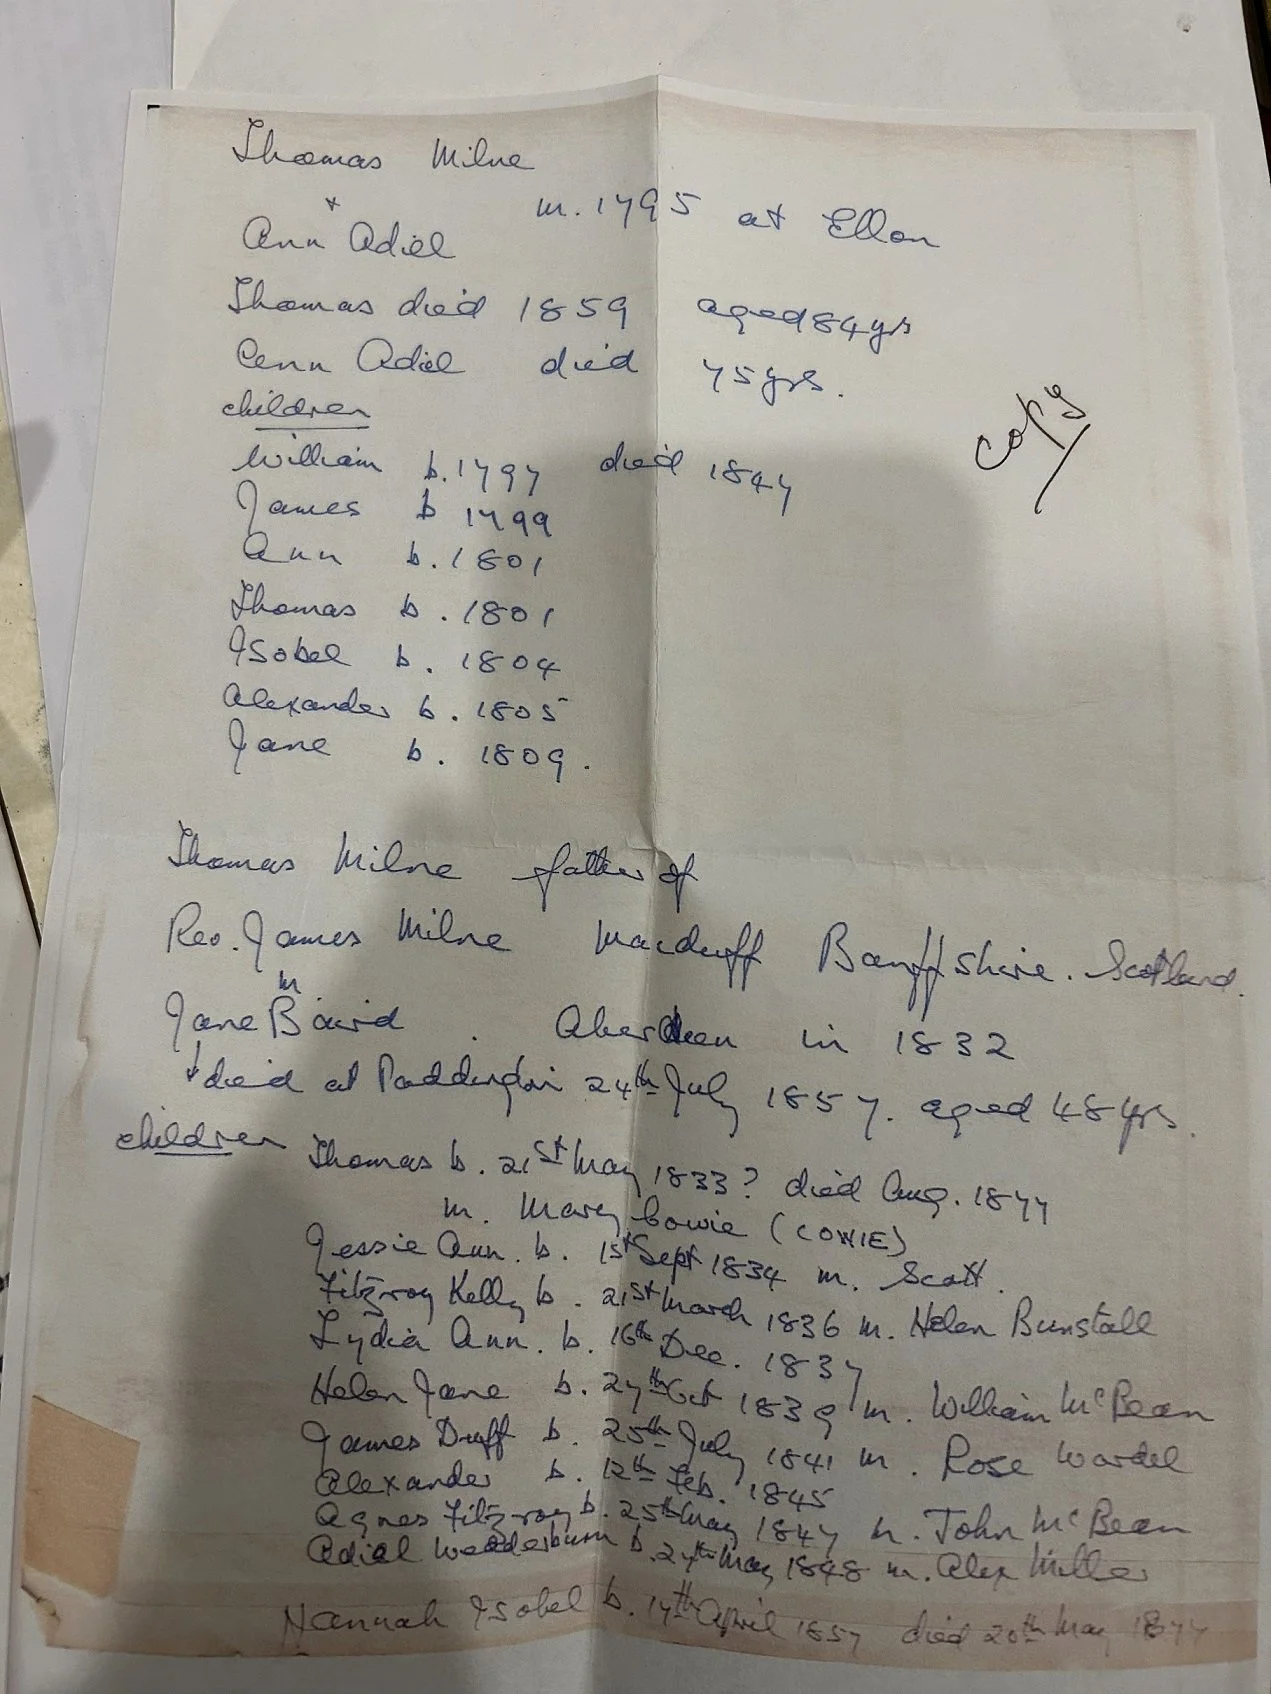 Thomas Milne
+ m. 1795 at Ellon
Ann Adiel
Thomas died 1859 aged 84 yrs
Ann Adiel died 75 yrs.
children
William b. 1797 died 1847
James b 1799
Ann b. 1801
Thomas b. 1801
Isobel b. 1804
Alexander b. 1805
Jane b. 1809.
copy
Thomas Milne father of
Rev. James Milne Macduff Banffshire. Scotland.
m
Jane Baird. Aberdeen in 1832
↓ died at Paddington 24th July 1857. aged 48 yrs.
children
Thomas b. 21st May 1833? died Aug. 1877
m. Mary Cowie (COWIE)
Jessie Ann. b. 1st Sept 1834 m. Scott.
Fitzroy Kelly b. 21st March 1836 m. Helen Bunstall
Lydia Ann. b. 16th Dec. 1837
Helen Jane b. 27th Oct 1839 m. William McBean
James Duff b. 25th July 1841 m. Rose Wardel
Alexander b. 12th Feb. 1845
Agnes Fitzroy b. 25th May 1847 m. John McBean
Adial Wedderburn b. 27th May 1848 m. Alex Miller
Hannah Isobel b. 17th April 1857 died 20th May 1877